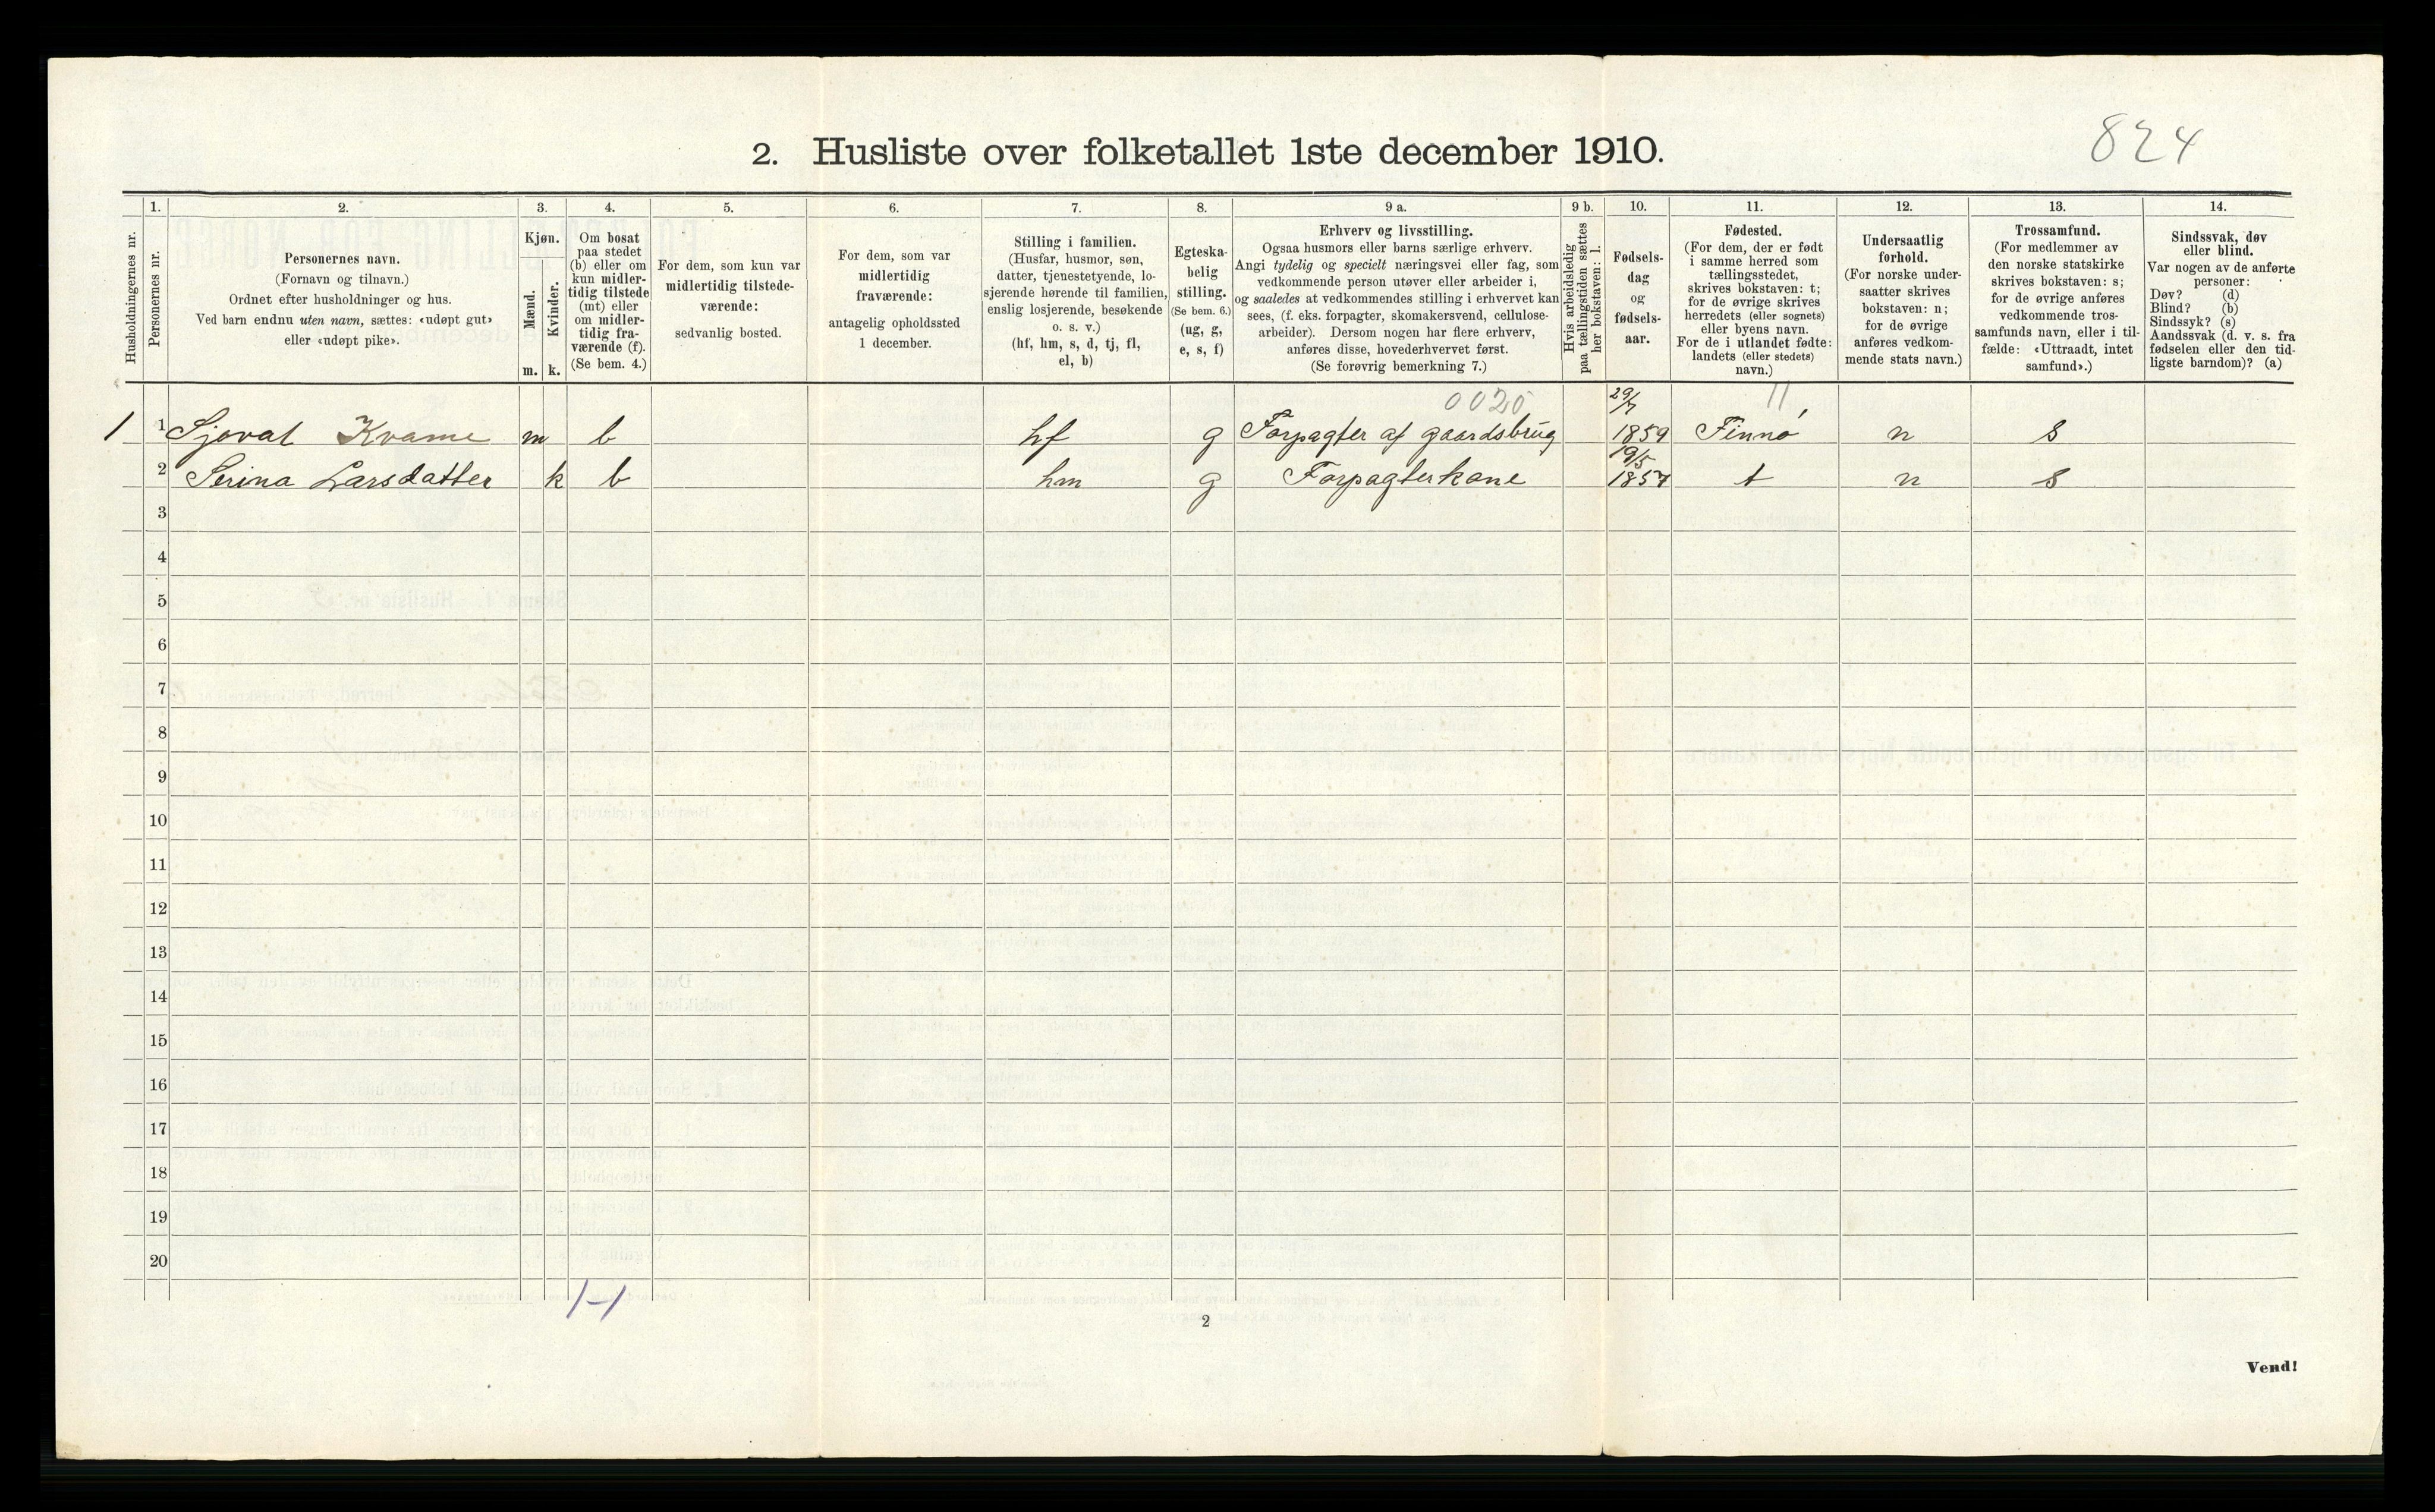 824
2. Husliste over folketallet 1ste december 1910.
Husholdningernes nr.
1.
Personernes nr.
2.
Personernes navn.
(Fornavn og tilnavn.)
Ordnet efter husholdninger og hus.
Ved barn endnu uten navn, sættes: «udøpt gut»
eller «udøpt pike».
3.
Kjøn.
Mænd.
Kvinder.
m. k.
4.
Om bosat
paa stedet
(b) eller om
kun midler-
tidig tilstede
(mt) eller
om midler-
tidig fra-
værende (f).
(Se bem. 4.)
5.
For dem, som kun var
midlertidig tilstede-
værende:
sedvanlig bosted.
6.
For dem, som var
midlertidig
fraværende:
antagelig opholdssted
1 december.
7.
Stilling i familien.
(Husfar, husmor, søn,
datter, tjenestetyende, lo-
sjerende hørende til familien,
enslig losjerende, besøkende
o. s. v.)
(hf, hm, s, d, tj, fl,
el, b)
8.
Egteska-
belig
stilling.
(Se bem. 6.)
(ug, g,
e, s, f)
9 a.
Erhverv og livsstilling.
Ogsaa husmors eller barns særlige erhverv.
Angi tydelig og specielt næringsvei eller fag, som
vedkommende person utøver eller arbeider i,
og saaledes at vedkommendes stilling i erhvervet kan
sees, (f. eks. forpagter, skomakersvend, cellulose-
arbeider). Dersom nogen har flere erhverv,
anføres disse, hovederhvervet først.
(Se forøvrig bemerkning 7.)
9 b.
Hvis arbeidsledig
paa tællingstiden sættes
her bokstaven: l.
10.
Fødsels-
dag
og
fødsels-
aar.
11.
Fødested.
(For dem, der er født
i samme herred som
tællingsstedet,
skrives bokstaven: t;
for de øvrige skrives
herredets (eller sognets)
eller byens navn.
For de i utlandet fødte:
landets (eller stedets)
navn.)
12.
Undersaatlig
forhold.
(For norske under-
saatter skrives
bokstaven: n;
for de øvrige
anføres vedkom-
mende stats navn.)
13.
Trossamfund.
(For medlemmer av
den norske statskirke
skrives bokstaven: s;
for de øvrige anføres
vedkommende tros-
samfunds navn, eller i til-
fælde: «Uttraadt, intet
samfund».)
14.
Sindssvak, døv
eller blind.
Var nogen av de anførte
personer:
Døv? (d)
Blind? (b)
Sindssyk? (s)
Aandssvak (d. v. s. fra
fødselen eller den tid-
ligste barndom)? (a)
0020 29/7 11
1 1 Sjoval Kvame m b hf g Forpagter af gaardsbrug 1859 Finnø n s
19/5
2 Serina Larsdatter k b hm g Forpagterkone 1857 t n s
3
4
5
6
7
8
9
10
11
12
13
14
15
16
17
18
19
20
1-1
2
Vend!